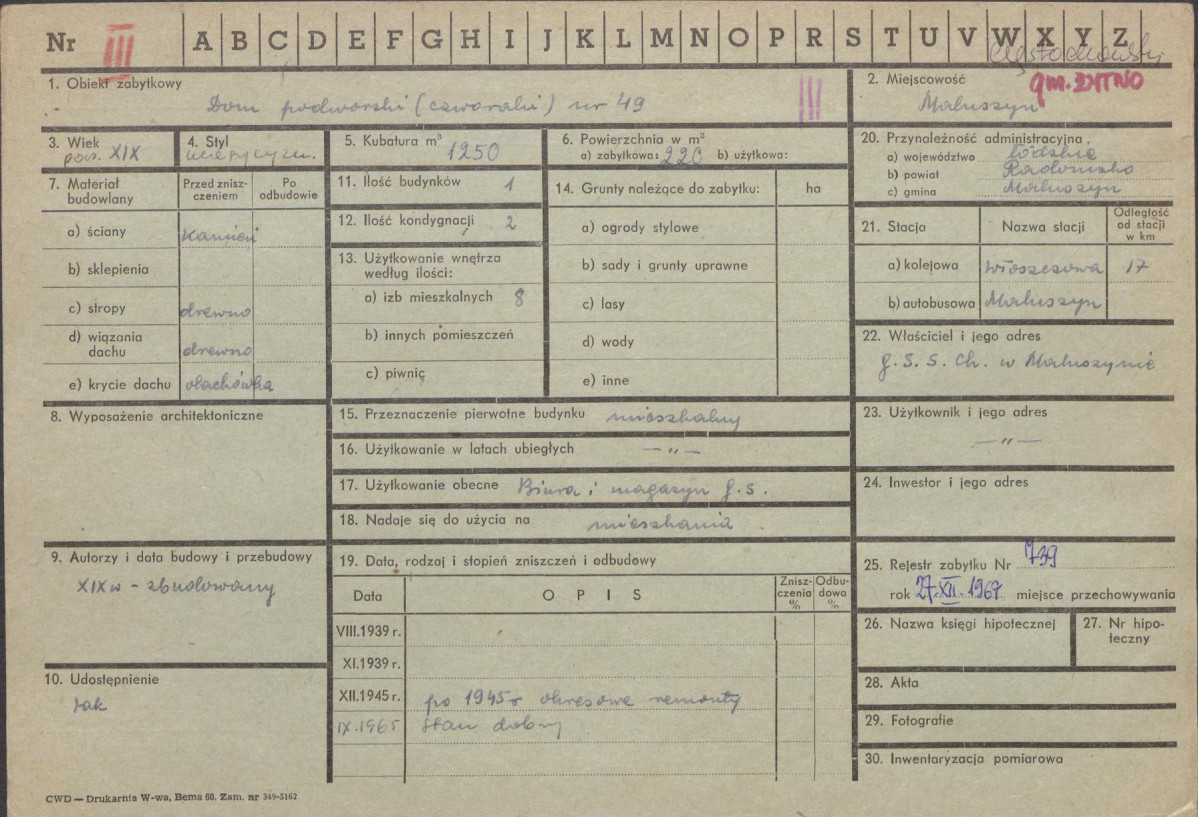 Nr III A B C D E F G H I J K L M N O P R S T U V W X Y Z
Częstochowski
1. Obiekt zabytkowy
Dom podworski (czworaki) nr 49 III
2. Miejscowość gm. ŻYTNO
Maluszyn
3. Wiek
poł. XIX
4. Styl
5. Kubatura m³ 1250
6. Powierzchnia w m²
a) zabytkowa: 220 b) użytkowa:
20. Przynależność administracyjna
a) województwo łódzkie
b) powiat Radomsko
c) gmina Maluszyn
7. Materiał budowlany
Przed zniszczeniem
Po odbudowie
a) ściany kamień
b) sklepienia
c) stropy drewno
d) wiązania dachu drewno
e) krycie dachu dachówka
11. Ilość budynków 1
12. Ilość kondygnacji 2
13. Użytkowanie wnętrza
według ilości:
a) izb mieszkalnych 8
b) innych pomieszczeń
c) piwnic
14. Grunty należące do zabytku: ha
a) ogrody stylowe
b) sady i grunty uprawne
c) lasy
d) wody
e) inne
21. Stacja Nazwa stacji Odległość od stacji w km
a) kolejowa Włoszczowa 17
b) autobusowa Maluszyn
22. Właściciel i jego adres
G. S. S. Ch. w Maluszynie
8. Wyposażenie architektoniczne
15. Przeznaczenie pierwotne budynku mieszkalny
16. Użytkowanie w latach ubiegłych — " —
17. Użytkowanie obecne Biura i magazyn G.S.
18. Nadaje się do użycia na mieszkania
23. Użytkownik i jego adres
— " —
24. Inwestor i jego adres
9. Autorzy i data budowy i przebudowy
XIX w - zbudowany
19. Data, rodzaj i stopień zniszczeń i odbudowy
Data OPIS Zniszczenia % Odbudowa %
VIII.1939 r.
XI.1939 r.
XII.1945 r. po 1945 r okresowe remonty
IX.1965 stan dobry
25. Rejestr zabytku Nr 739
rok 27.XII.1967 miejsce przechowywania
26. Nazwa księgi hipotecznej
27. Nr hipoteczny
10. Udostępnienie
tak
28. Akta
29. Fotografie
30. Inwentaryzacja pomiarowa
CWD — Drukarnia W-wa, Bema 60. Zam. nr 349-5162